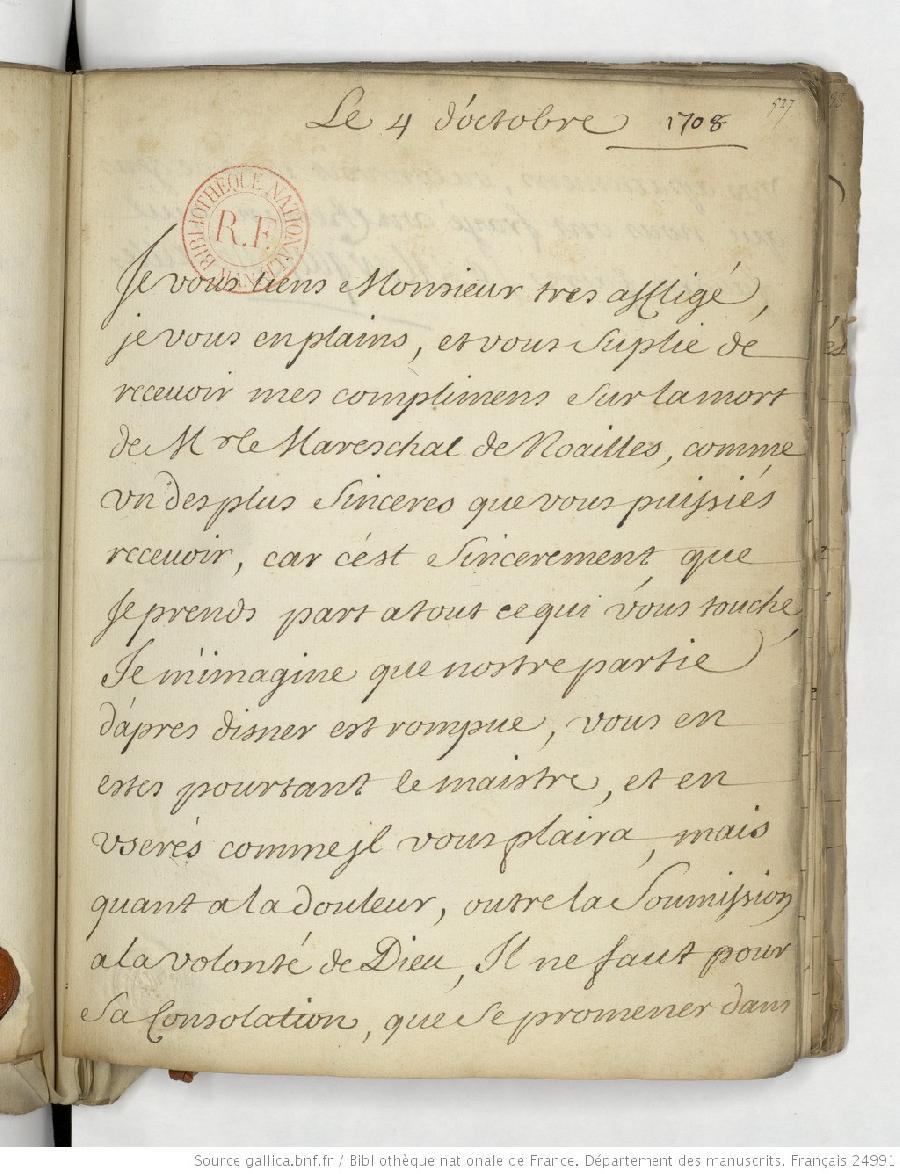 527
Le 4 d'octobre 1708
BIBLIOTHÈQUE NATIONALE MAN
R.F.
Je vous tiens Monsieur tres affligé,
je vous en plains, et vous suplie de
receuoir mes complimens sur la mort
de Mr le Mareschal de Noailles, comme
vn des plus sinceres que vous puissiés
receuoir, car c'est sincerement que
Je prends part a tout ce qui vous touche,
Je m'imagine que nostre partie
d'apres disner est rompue, vous en
estes pourtant le maistre, et en
vserés comme jl vous plaira, mais
quant a la douleur, outre la Soumission
a la volonté de Dieu, Il ne faut pour
sa Consolation, que se promener dans
Source gallica.bnf.fr / Bibliothèque nationale de France. Département des manuscrits. Français 24991